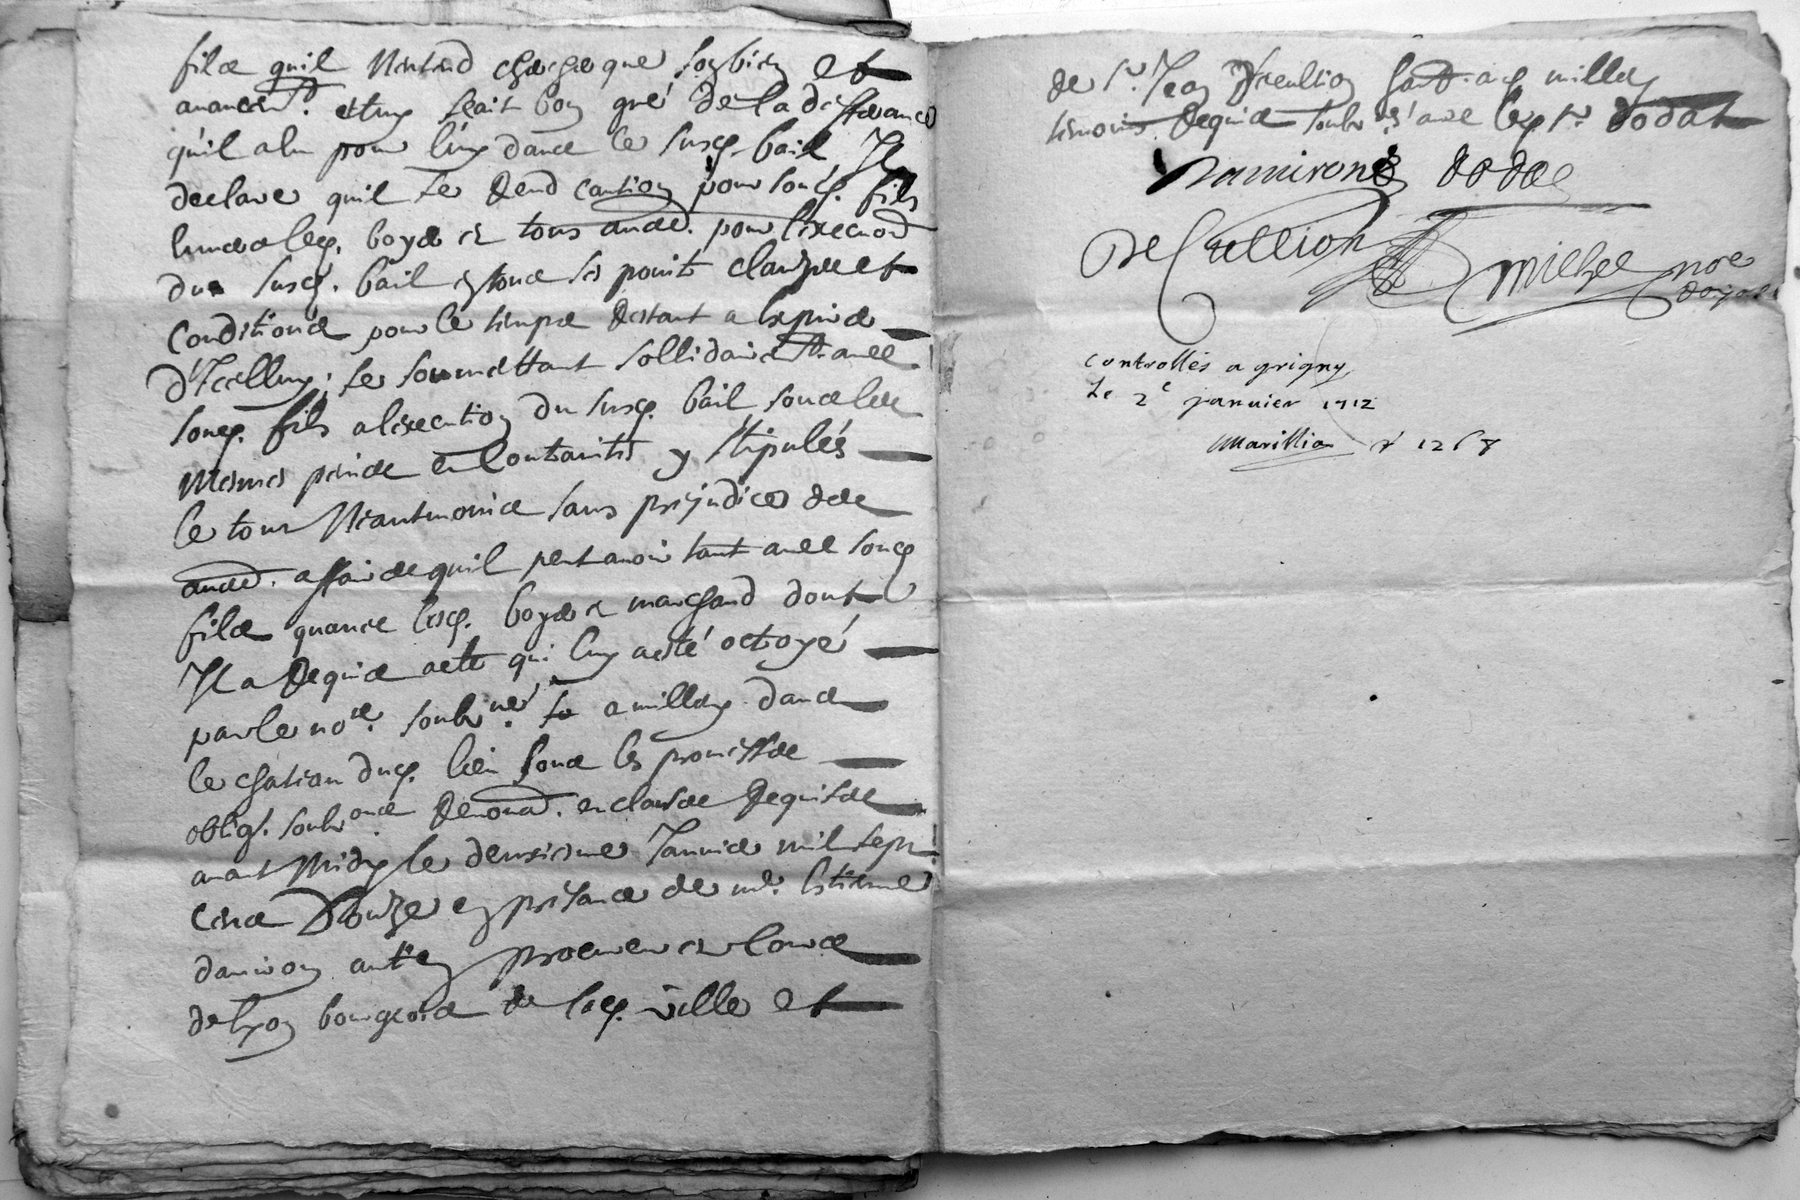 fils quil N'entend chercher que son bien et
avancem^t. et luy sçait bon gré de la defferance
qu'il a lu pour luy dans le susd. bail, Il
declare quil se Rend caution pour sond. fils
envers lesd. boyer et tous autres. pour l'execu^on
du susd. bail en tous ses points clauzes et
Conditions pour le temps Restant a expirer
D'Icelluy, se soumettant sollidairem^t. avec
sond. fils a l'execution du susd. bail sous les
Mesmes peines et Contraintes y stipulés
le tout Neantmoins sans prejudice des
autres. affaires quil peut avoir tant avec sond
fils quavec lesd. boyer et marchand dont
Il a Requis acte qui luy a esté octroyé
par le no^re. soub^né. fe a millery dans
le chateau dud. lieu sous les promesses
oblig^s. soub^ons Renon^ons. et clauses Requises
avant Midy le deuxieme Janvier mil sept
cens Douze en presance de m^e. Estienne
damiron antien procureur ez cours
de lyon bourgeois de lad. ville et
de s^r. Jean Decullion hab^t. aud millery
temoins Requis soub^nés avec led s^r. dodat
Damiron dodat
DeCullion Michel no^re
royal
controllés a grigny
Le 2^e janvier 1712
Marillier